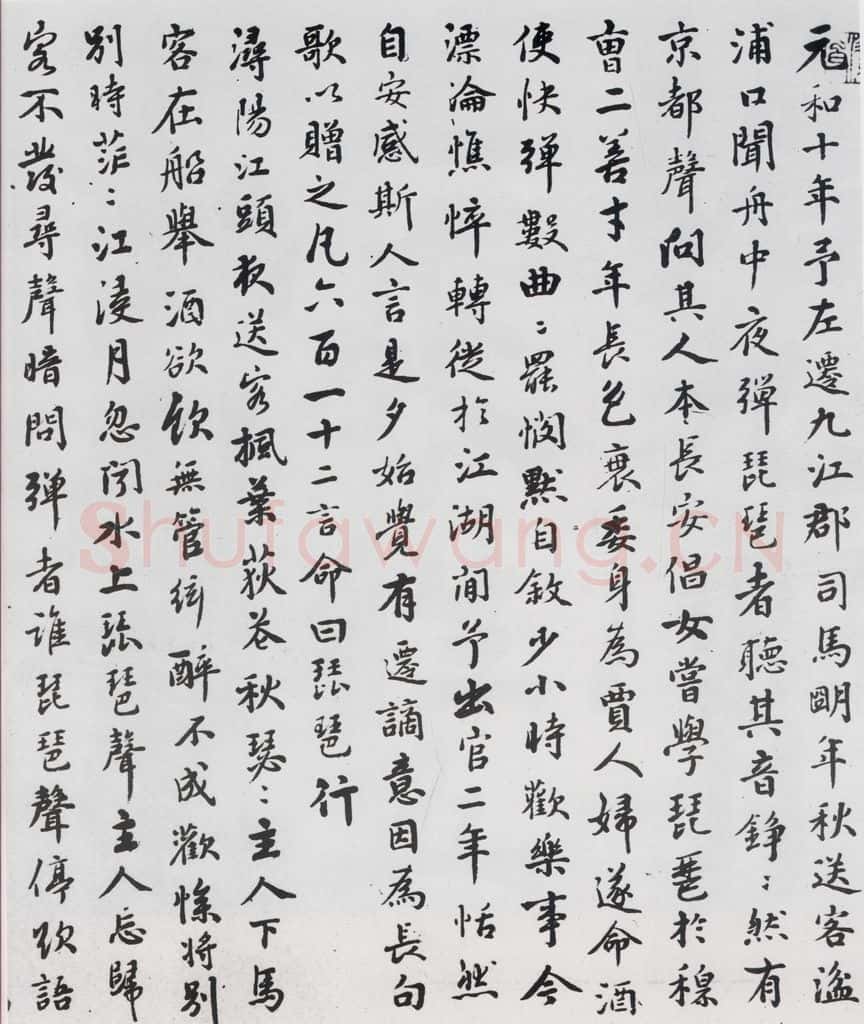 元和十年予左遷九江郡司馬明年秋送客湓
浦口聞舟中夜彈琵琶者聽其音錚〻然有
京都聲問其人本長安倡女嘗學琵琶於穆
曹二善才年長色衰委身為賈人婦遂命酒
使快彈數曲〻罷憫默自敘少小時歡樂事今
漂淪憔悴轉徙於江湖間予出官二年恬然
自安感斯人言是夕始覺有遷謫意因為長句
歌以贈之凡六百一十二言命曰琵琶行
潯陽江頭夜送客楓葉荻花秋瑟〻主人下馬
客在船舉酒欲飲無管絃醉不成歡慘將別
別時茫〻江浸月忽聞水上琵琶聲主人忘歸
客不發尋聲暗問彈者誰琵琶聲停欲語
Shufawang.CN